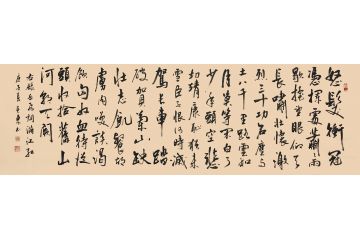 怒髮衝冠
憑欄處瀟雨
歇抬望眼仰天
長嘯壯懷激
烈三十功名塵與
土八千里路雲和
月莫等閒白了
少年頭空悲
切靖康恥猶未
雪臣子恨何時滅
駕長車踏
破賀蘭山缺
壯志飢餐
虜肉笑談渴
飲匈奴血待從
頭收拾舊山
河朝天闕
右錄岳飛詞滿江紅